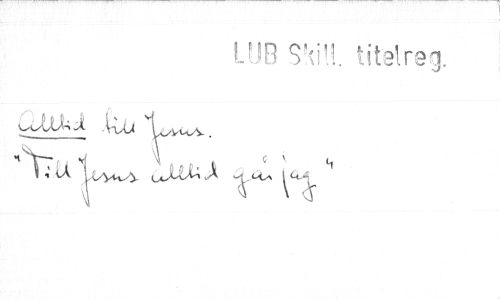 LUB Skill. titelreg.
Alltid till Jesus.
"Till Jesus alltid går jag"